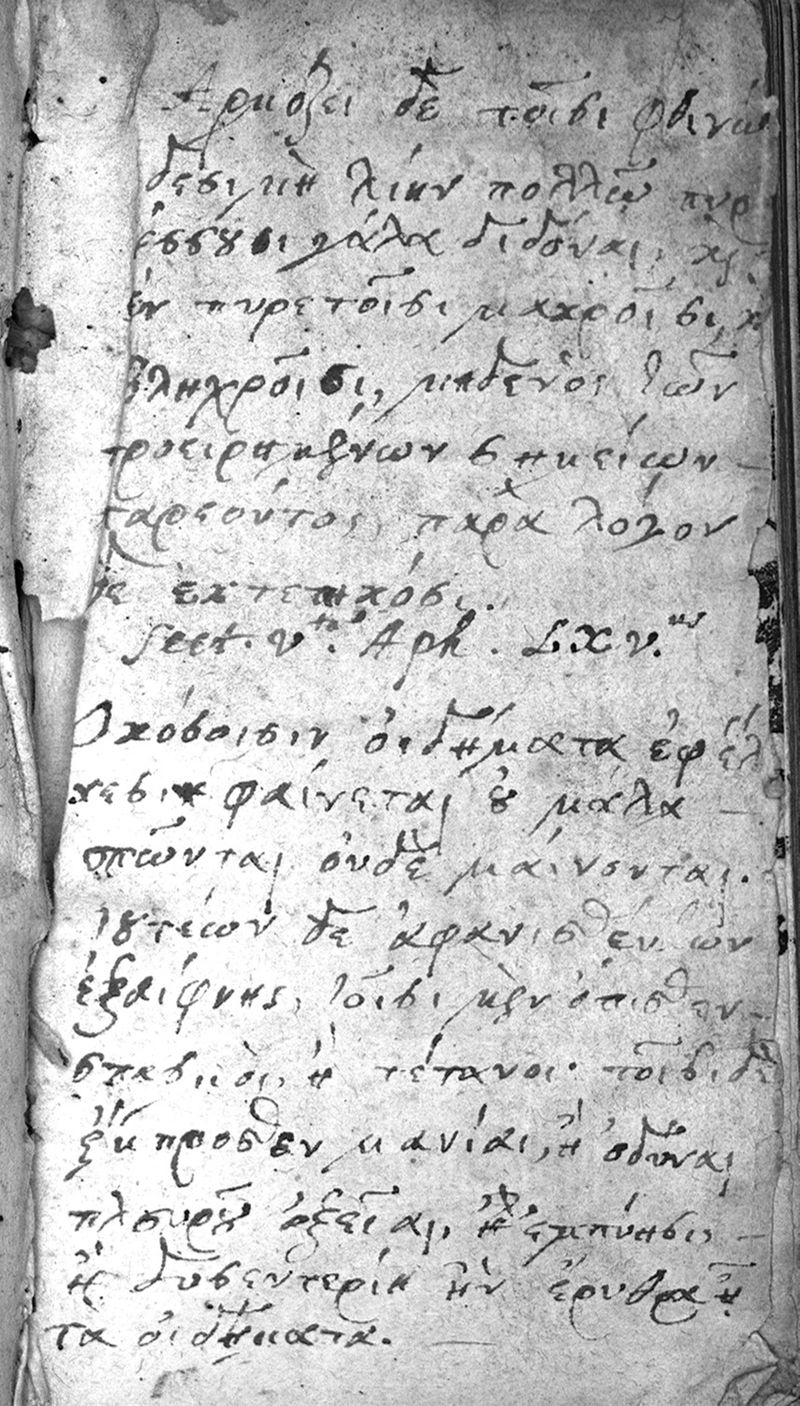 Ἁρμόζει δὲ τοῖσι φθινώ
δεσι μὴ λίην πολλῶ πυρ
έσσουσι γάλα διδόναι,
ἐν πυρετοῖσι μακροῖσι,
βληχροῖσι, μηδενὸς τῶν
προειρημένων σημείων
παρεόντος, παρὰ λόγον
δὲ ἐκτετηκόσι.
Sect. v.ta Aph. LXV.us
Ὁκόσοισιν οἰδήματα ἐφ' ἕλ
κεσιν φαίνεται οὐ μάλα
σπῶνται οὐδὲ μαίνονται.
τουτέων δὲ ἀφανισθέντων
ἐξαίφνης, τοῖσι μὲν ὄπισθεν
σπασμοὶ, ἢ τέτανοι· τοῖσι δὲ
ἔμπροσθεν μανίαι, ἢ ὀδύναι
πλευροῦ ὀξεῖαι, ἢ ἐμπύησις
ἢ δυσεντερίη ἢν ἐρυθρὰ ᾖ
τὰ οἰδήματα.